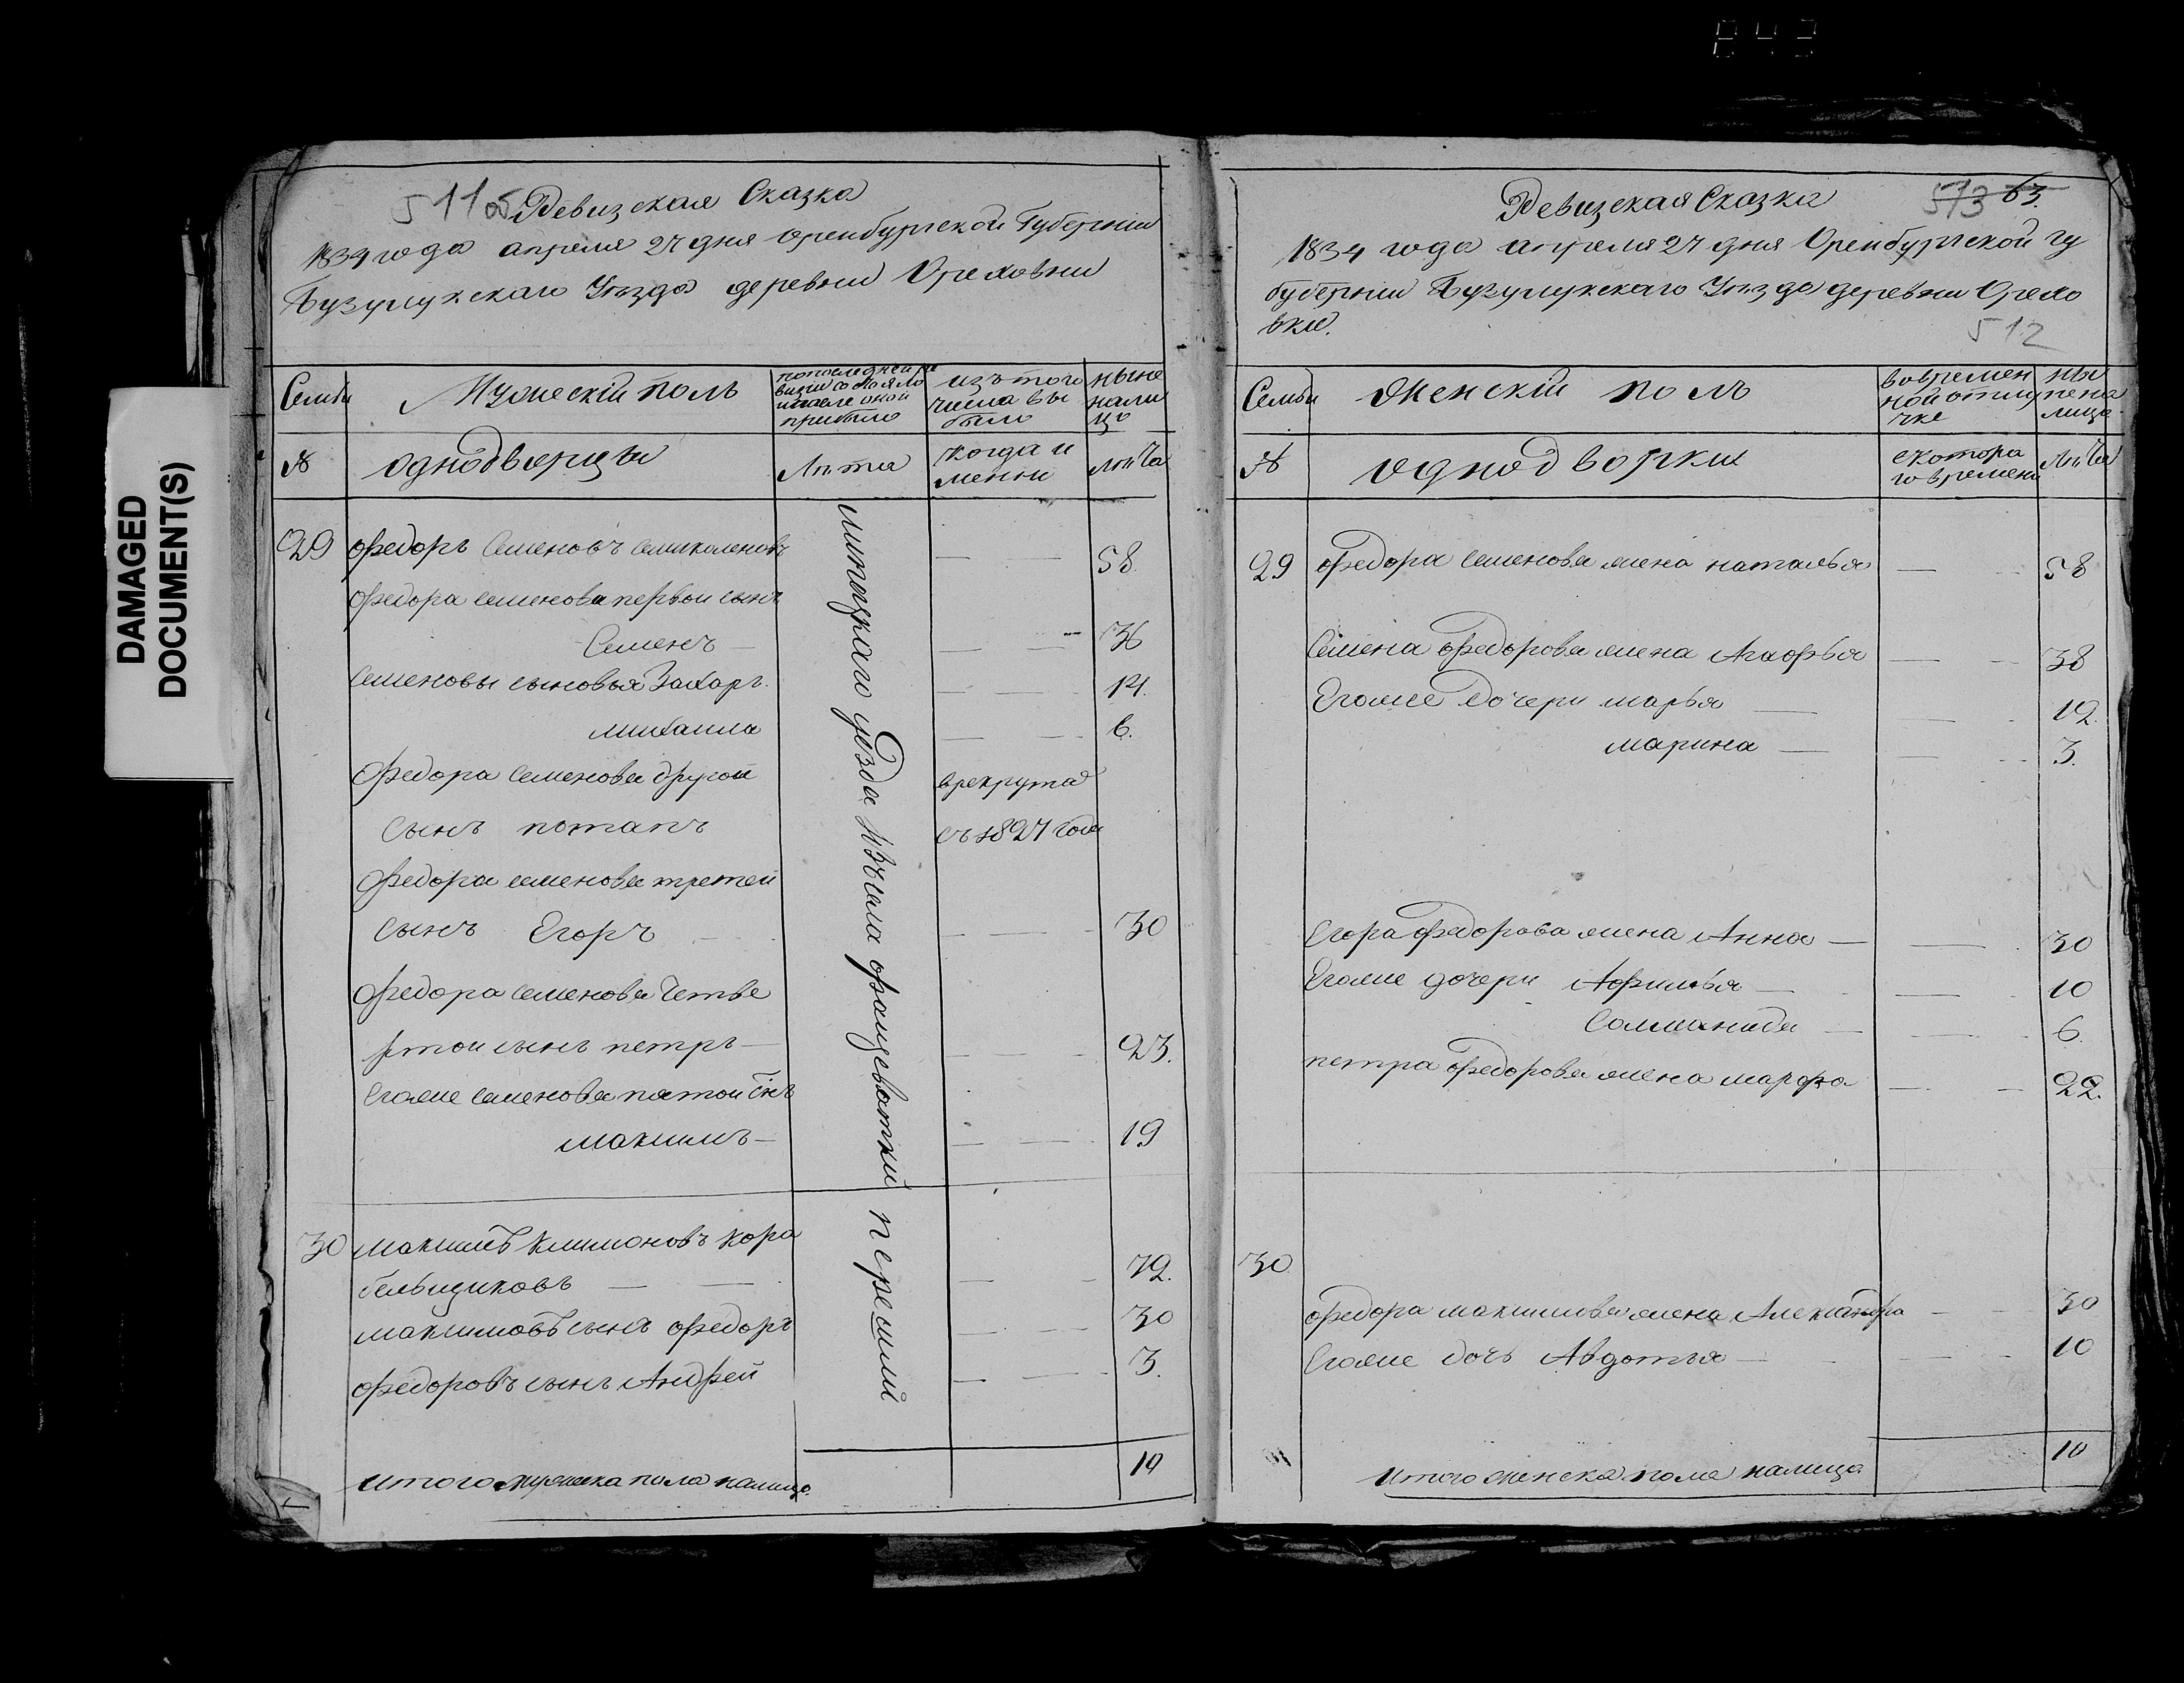 843
DAMAGED
DOCUMENT(S)
511об
Ревизская Сказка
1834 года апреля 27 дня Оренбургской Губернии
Бузулукскаго Уезда деревни Ореховки
Семьи
Мужескій полъ
попоследней ре
визии состояло
ипосле оной
прибыло
изътого
числа вы
было
ныне
нали
цо
№
однодворцы
Лѣта
когда и
менно
лѣта
29 Федоръ Семеновъ Семиколеновъ — — 58
Федора семенова первои сынъ
Семенъ — — 36
Семеновы сыновья Захаръ — — 14.
михаила — — 6.
Федора семенова другой врекрута
сынъ потапъ съ 1827 года
Федора семенова третей
сынъ Егоръ — — 30
Федора семенова четве
ртои сынъ петръ — — 23.
Егоже семенова пятои снъ
максимъ — — 19
30 максимъ Климоновъ Кора
бельщиковъ — — 72.
максимовъ сынъ федоръ — — 30
федоровъ сынъ Андрей — — 3.
уезда
перешли
итого мужеска пола налицо 10
Ревизская Сказка
573 63.
1834 года апреля 27 дня Оренбургской гу
бубернии Бузулукскаго Уезда деревни Орехо
вки.
512
Семьи
Женскій полъ
вовремен
ной отлу
чке
ны
не на
лицо
№
однодворки
скотора
го времени
лѣта
29 Федора семенова жена наталья — 58
Семена федорова жена Агафья — 38
Егоже дочери марья — 12.
марина — 3.
Егора федорова жена Анна — 30
Егоже дочери Афимья — 10
Соломанида — 6.
петра федорова жена марфа — 22.
30.
федора максимова жена Александра — 30
Егоже дочь Авдотья — 10
итого женска пола налицо 10